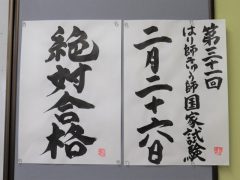 第三十一回
はり師きゅう師国家試験
二月二十六日
絶対合格